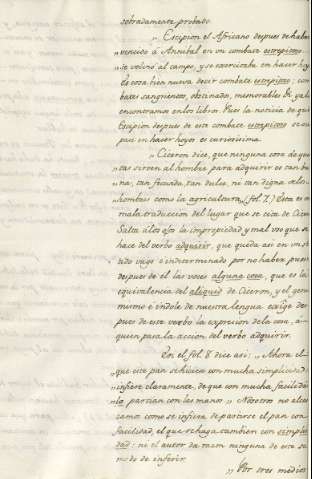 sobradamente probado.
„ Escipion el Africano despues de haber
vencido á Annibal en un combate estrepitoso
se retiró al campo, y se exercitaba en hacer hoy
Es cosa bien nueva decir combate estrepitoso: com
bates sangrientos, obstinados, memorables &c. ya lo
encontramos en los libros. Pues la noticia de que
Escipion despues de este combate estrepitoso se ocu
pau en hacer hoyos es curiosissima.
„ Ciceron dice, que ninguna cosa de quan
tas sirven al hombre para adquirir es tan bue
na, tan fecunda, tan dulce, ni tan digna de los
hombres como la agricultura (fol. 7.) Esta es u
mala traduccion del lugar que se cita de Cicer
Salta á los ojos la impropiedad y mal uso que se
hace del verbo adquirir, que queda asi en un sen
tido vago é indeterminado por no haber puesto
despues de él las voces alguna cosa, que es la
equivalencia del aliquid de Ciceron, y el genio
mismo é indole de nuestra lengua exîge des
pues de este verbo la expresion de la cosa, á
quien pasa la accion del verbo adquirir.
En el fol. 8 dice asi: „ Ahora el
que este pan se hiciera con mucha simplicidad
infiere claramente, de que con mucha facilidad
lo partian con las manos „ Nosotros no alcan
zamos como se infiera de partirse el pan con
facilidad, el que se haga tambien con simplici
dad: ni el autor da razon ninguna de este su
modo de inferir.
„ Por tres medios